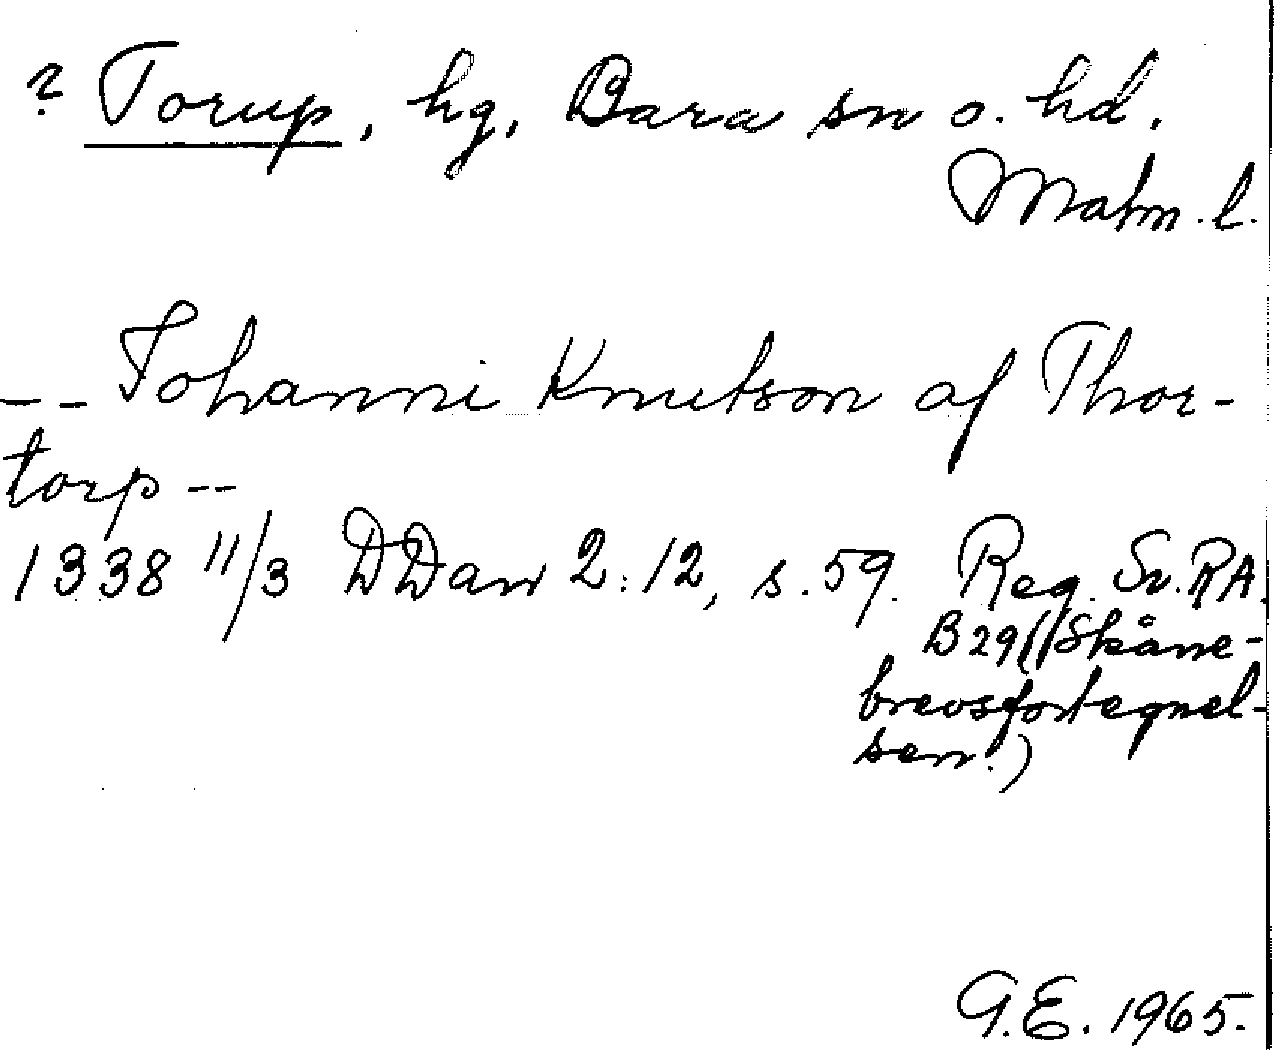 ? Torup, hg, Bara sn o. hd.
Malm. l.
-- Johanni Knutson af Thor-
torp --
1338 11/3 DDan 2:12, s. 59. Reg. Sv. RA.
B 29 (Skåne-
brevsfortegnel-
sen.)
G.E. 1965.